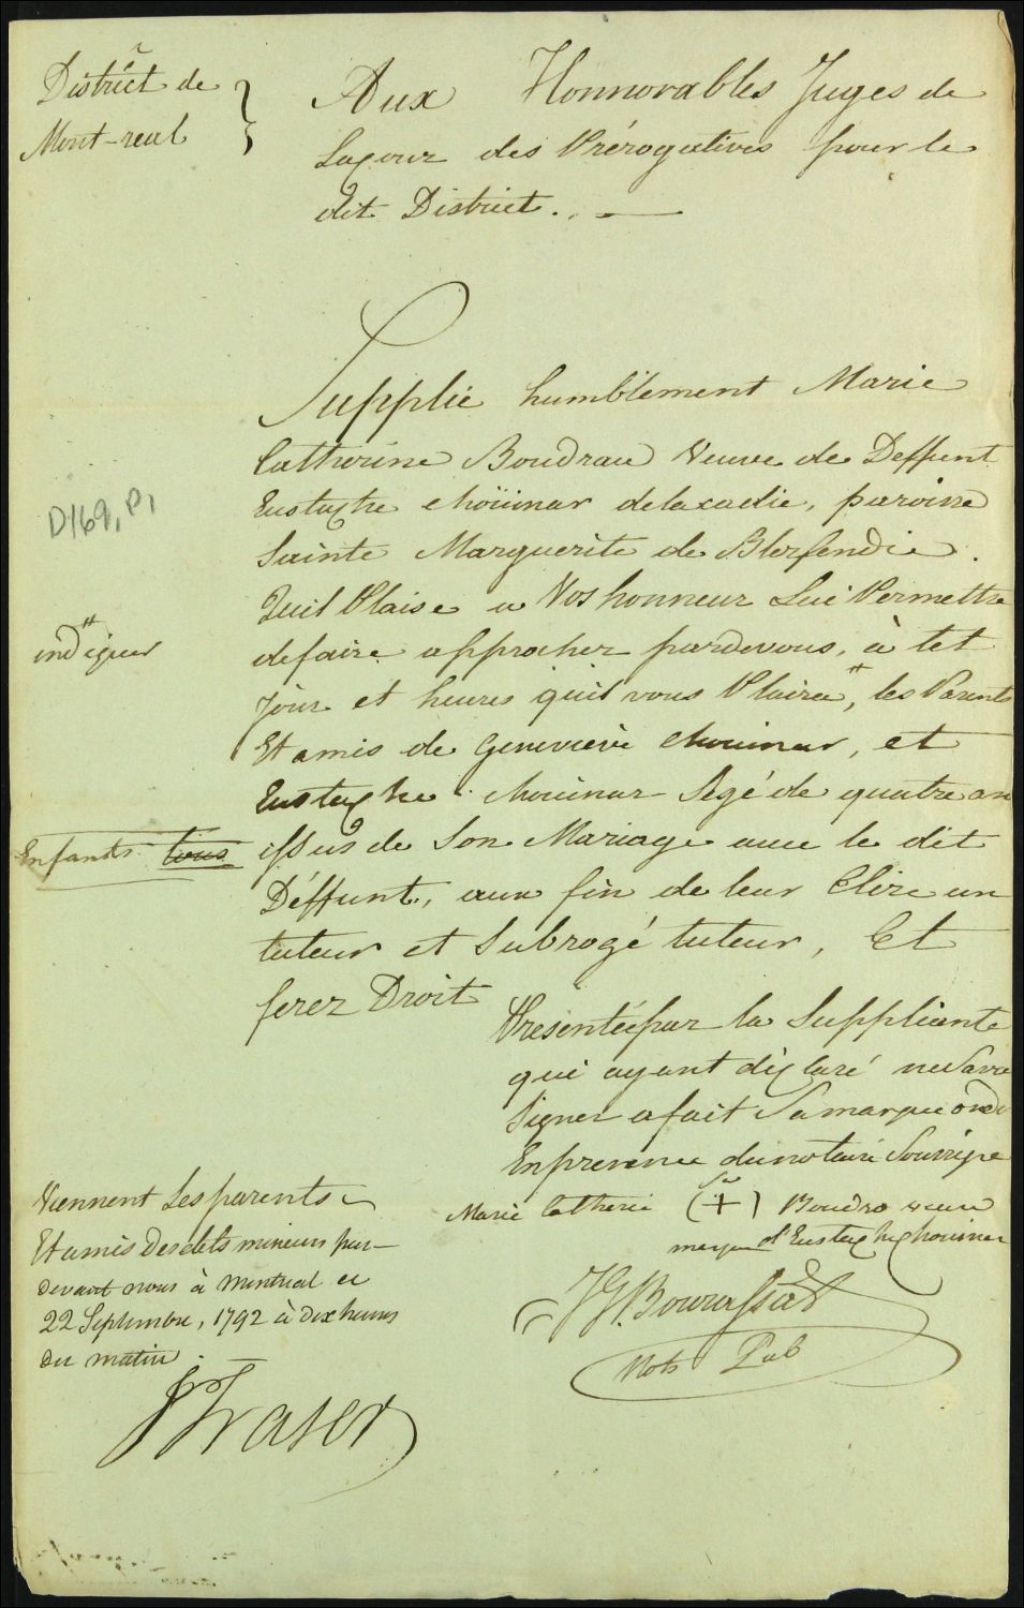 District de
Mont-real
Aux Honnorables Juges de
Lacour des Prérogatives pour le
dit District.
Supplie humblement Marie
Catherine Boudrau Veuve de Deffunt
Eustache choüinar delacadie, paroisse
Sainte Marguerite de Blerfendie.
Quil Plaise a Vos honneur Lui Permettre
defaire approcher pardevous, à tel
Jour et heures quil vous Plaira #, les Parents
Et amis de Genevieve chouinar, et
Eustache chouinar Agé de quatre an
issus de Son Mariage avec le dit
Déffunt, aux fin de leur Elire un
tuteur et Subrogé tuteur, Et
ferez Droit
D169, P1
# indiquer
Enfants tous
Presentée par la Suppliante
qui ayant déclaré ne Savoir
Signer a fait Sa marque
En presence du notaire Soussigné
Marie Catherine (+) Boudro veuve
Sa marque d'Eustache chouinar
JG. Bourassa
Not. Pub
Viennent Les parents
Et amis Desdits mineurs par-
devant nous à Montreal ce
22 Septembre, 1792 à dix heures
du matin.
J Fraser